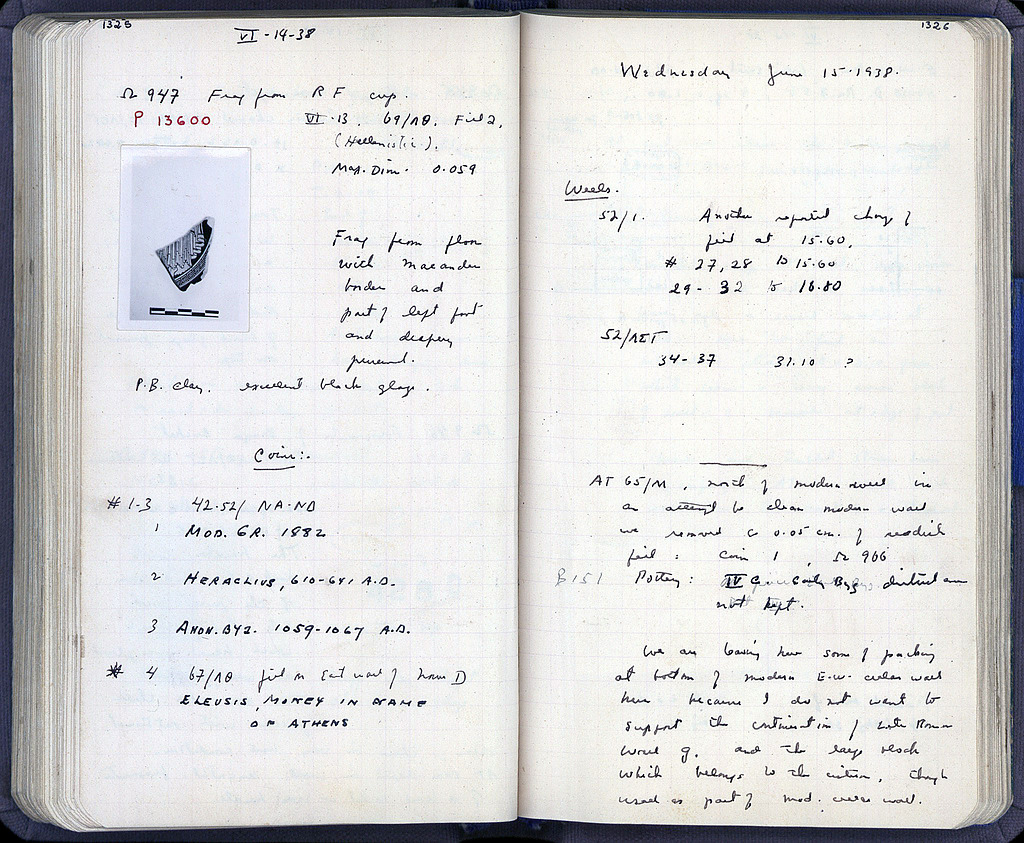 1325
VI-14-38
Ω 947 Frag from R F cup.
P 13600 VI-13. 69/ΛΘ. Fill 2,
(Hellenistic).
Max. Dim. 0.059
Frag from floor
with maeander
border and
part of left foot
and drapery
preserved.
P.B. clay. excellent black glaze.
Coins:
# 1-3 42-52/ ΝΑ-ΝΔ
1 MOD. GR. 1882
2 HERACLIUS, 610-641 A.D.
3 ANON. BYZ. 1059-1067 A.D.
# 4 67/ΛΘ fill on East wall of House D
ELEUSIS, MONEY IN NAME
OF ATHENS
1326
Wednesday June 15-1938.
Wells.
52/1. Another reported change of
fill at 15.60,
# 27, 28 to 15.60
29-32 to 16.80
52/ΛΣΤ
34-37 31.10 ?
AT 65/Μ, north of modern sewer in
an attempt to clean modern wall
we removed c 0.05 cm. of
fill: Coin 1, Ω 966
B151 Pottery: IV C Early Byz
not kept.
We are leaving here some of packing
at bottom of modern E-W. wall
here because I do not want to
support the continuation of Late Roman
wall g. and the large block
which belongs to the cistern, though
used as part of mod. wall.